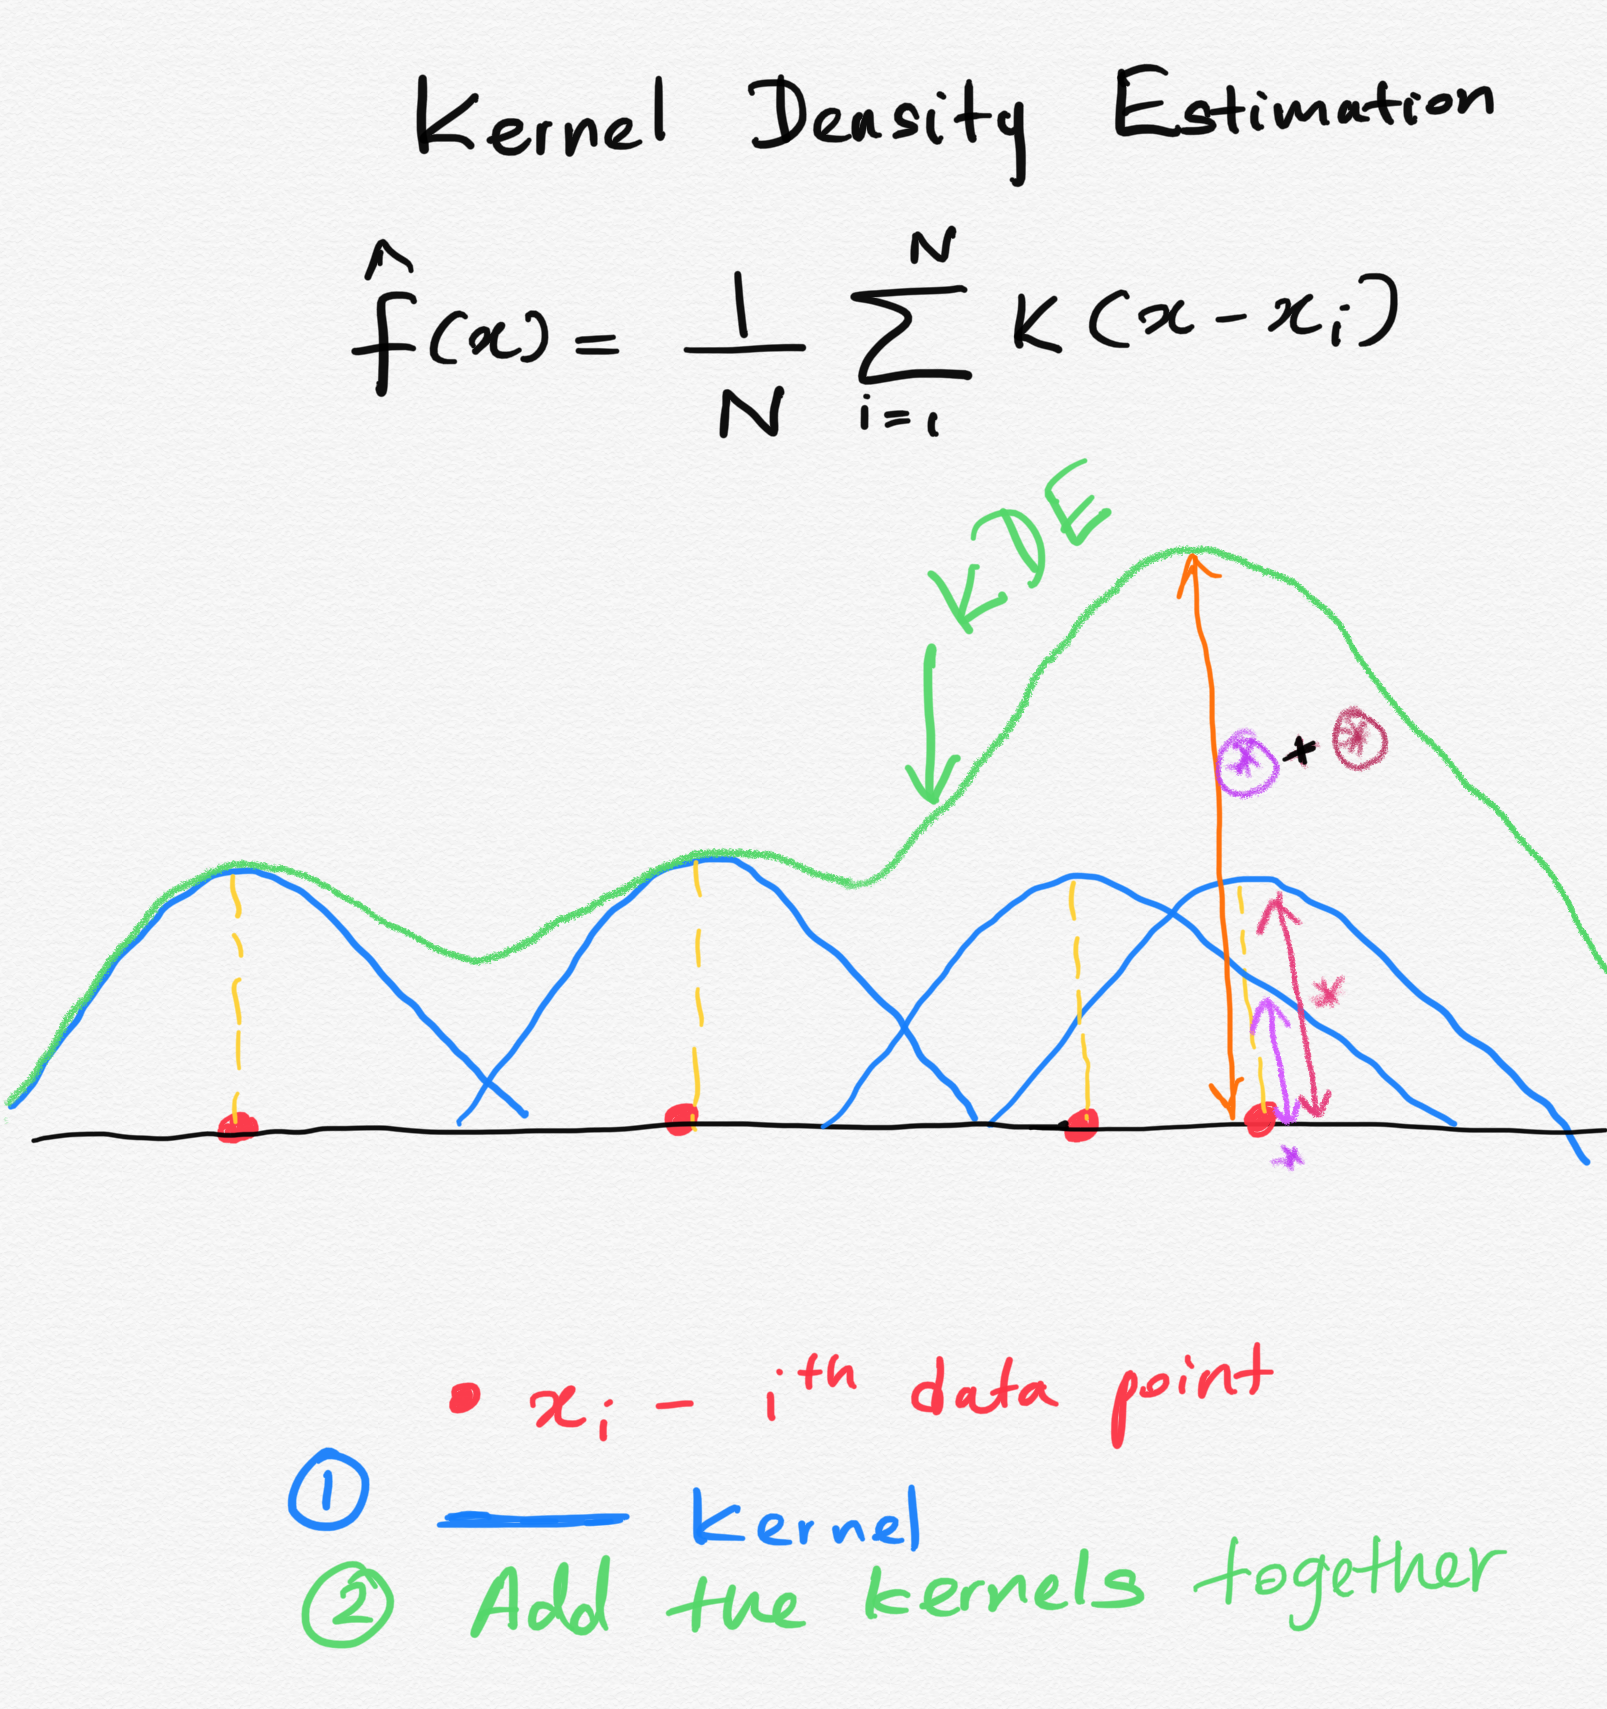 Kernel Density Estimation
f̂(x) = 1/N Σ_{i=1}^{N} K(x - x_i)
KDE
* + *
*
*
• x_i - i^th data point
① — Kernel
② Add the kernels together